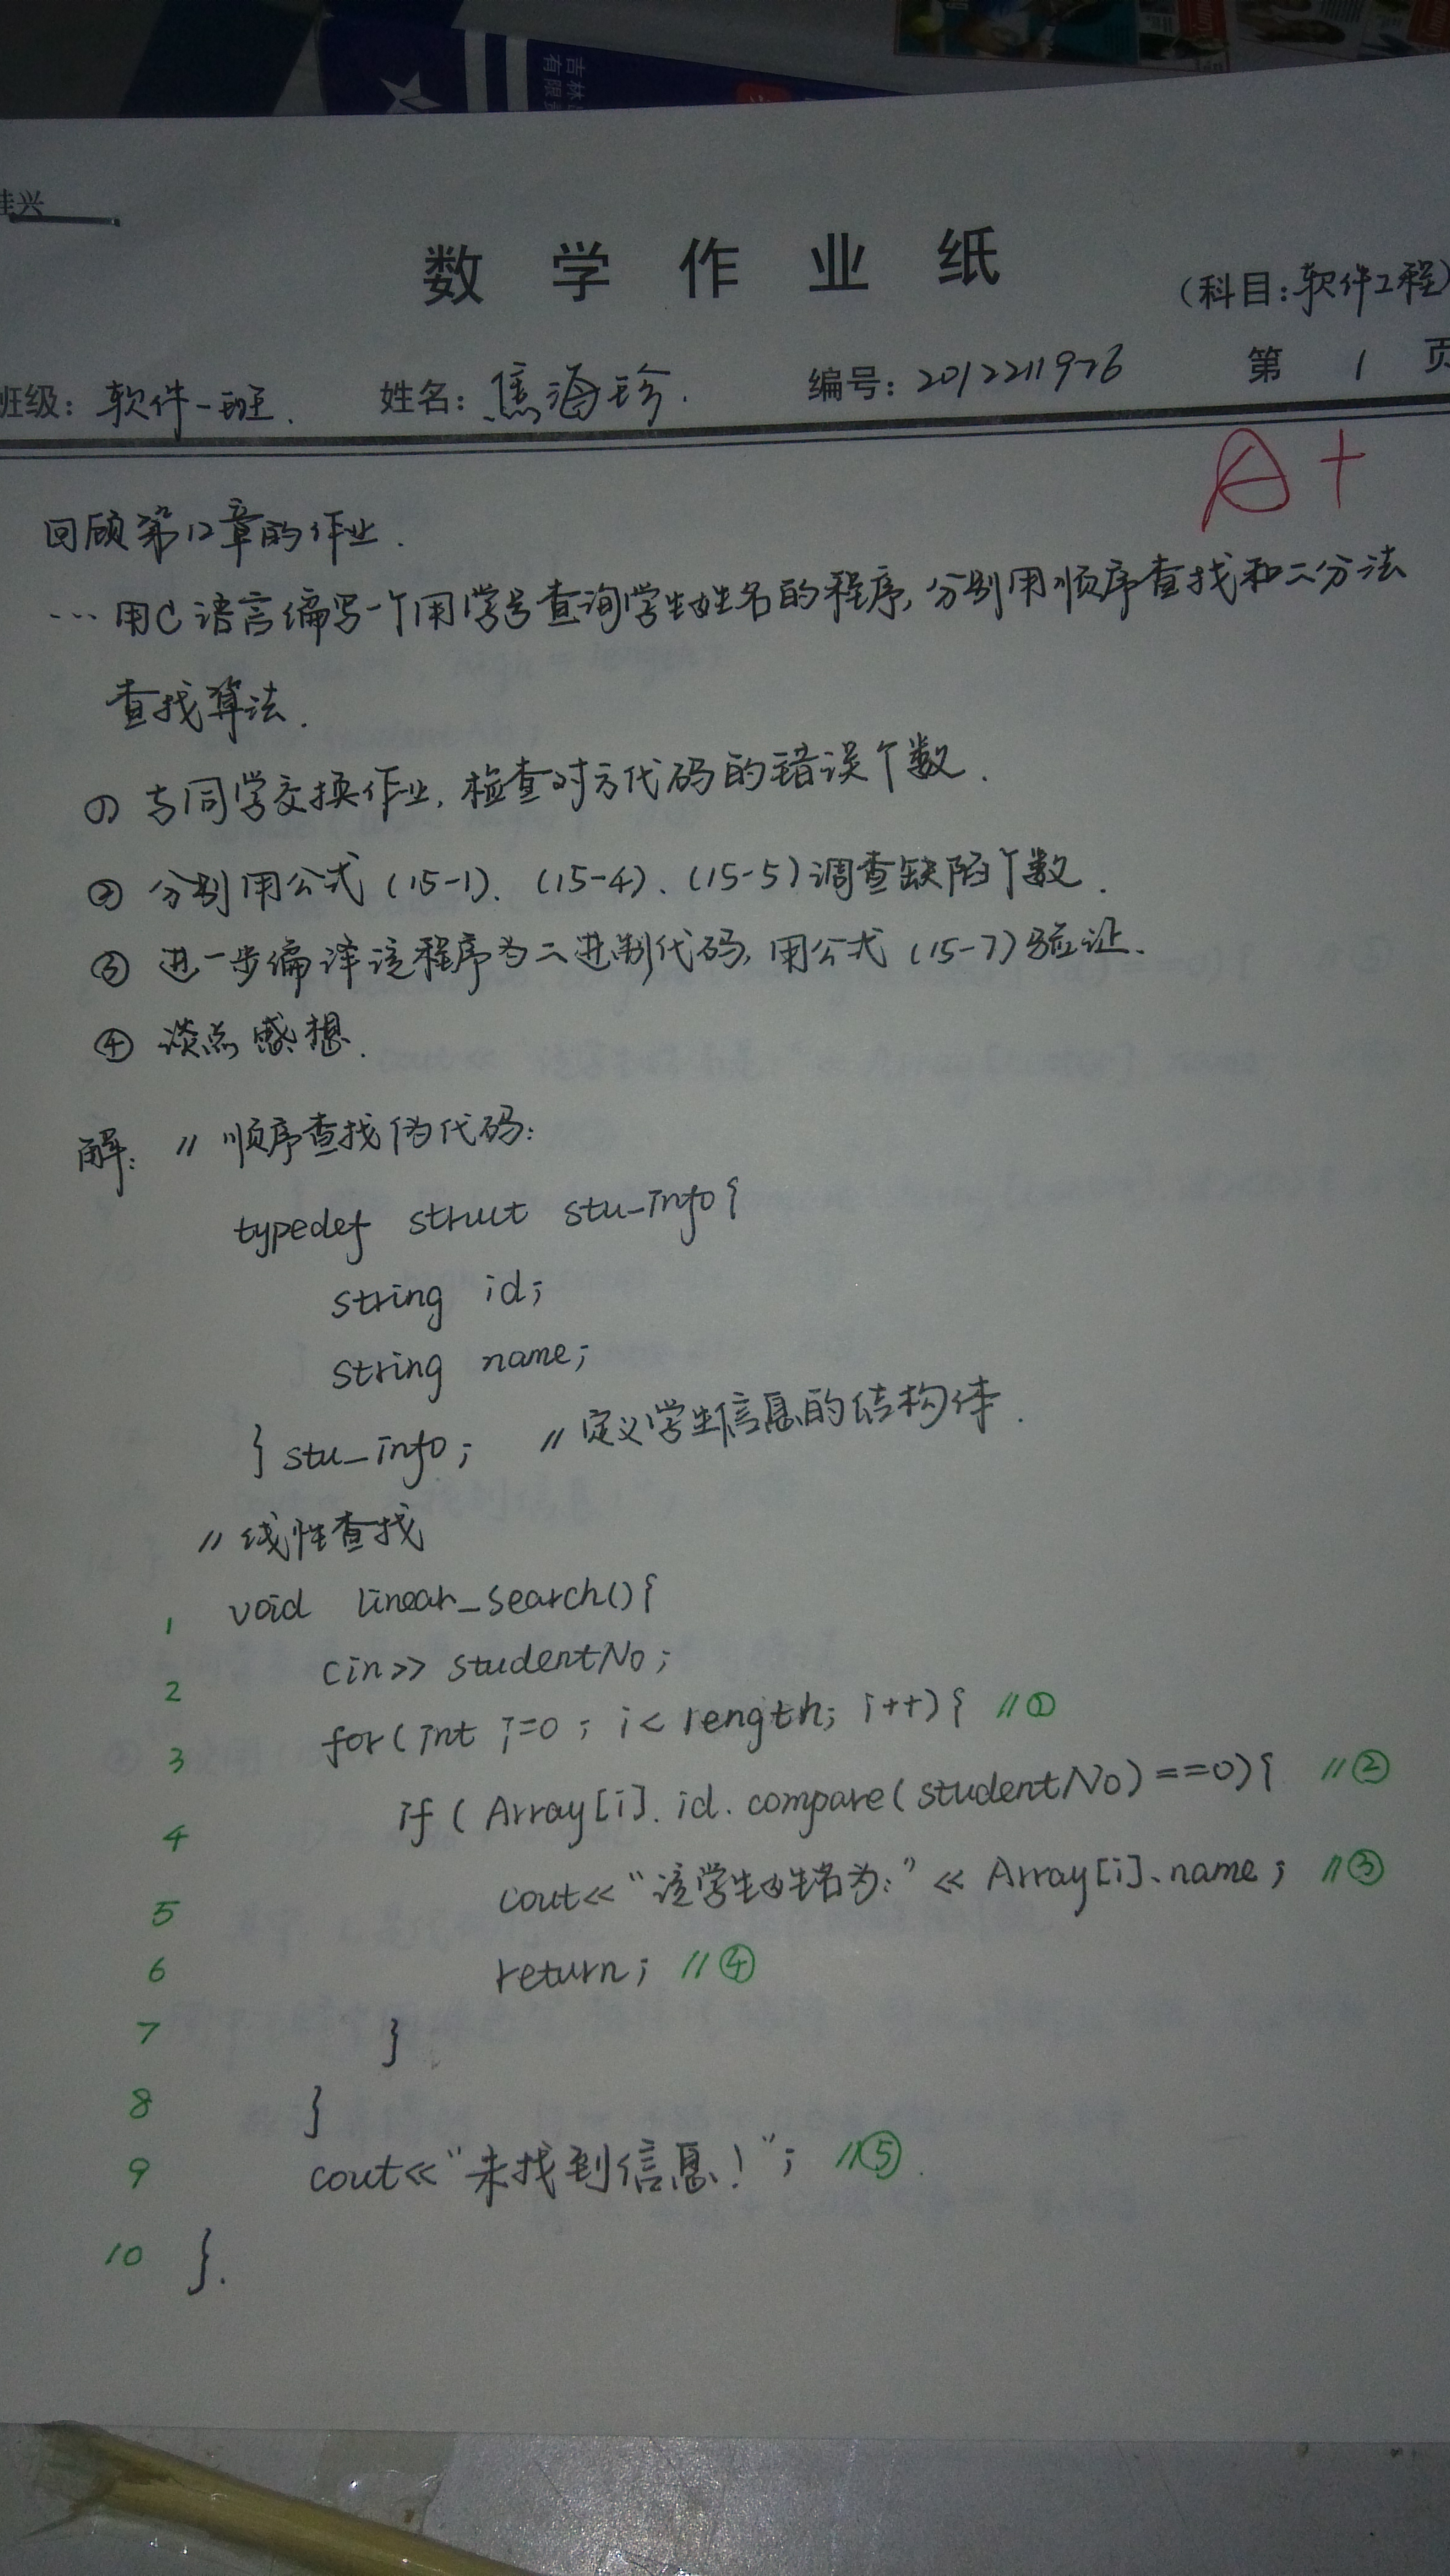 吉林
有限
佳兴
数 学 作 业 纸
(科目:软件工程)
班级: 软件一班. 姓名: 焦海珍. 编号: 2012211976 第 1 页
A+
回顾第12章的作业.
… 用C语言编写一个用学号查询学生姓名的程序,分别用顺序查找和二分法
查找算法.
① 与同学交换作业,检查对方代码的错误个数.
② 分别用公式 (15-1)、(15-4)、(15-5)调查缺陷个数.
③ 进一步编译该程序为二进制代码,用公式 (15-7)验证.
④ 谈点感想.
解: // 顺序查找伪代码:
typedef struct stu_info{
string id;
string name;
} stu_info; // 定义学生信息的结构体.
// 线性查找
1 void linear_search(){
2 cin>> studentNo;
3 for(int i=0; i< length; i++){ //①
4 if( Array[i]. id. compare( studentNo)==0){ //②
5 cout<< “该学生姓名为:” << Array[i].name; //③
6 return; //④
7 }
8 }
9 cout<<“未找到信息!”; //⑤.
10 }.